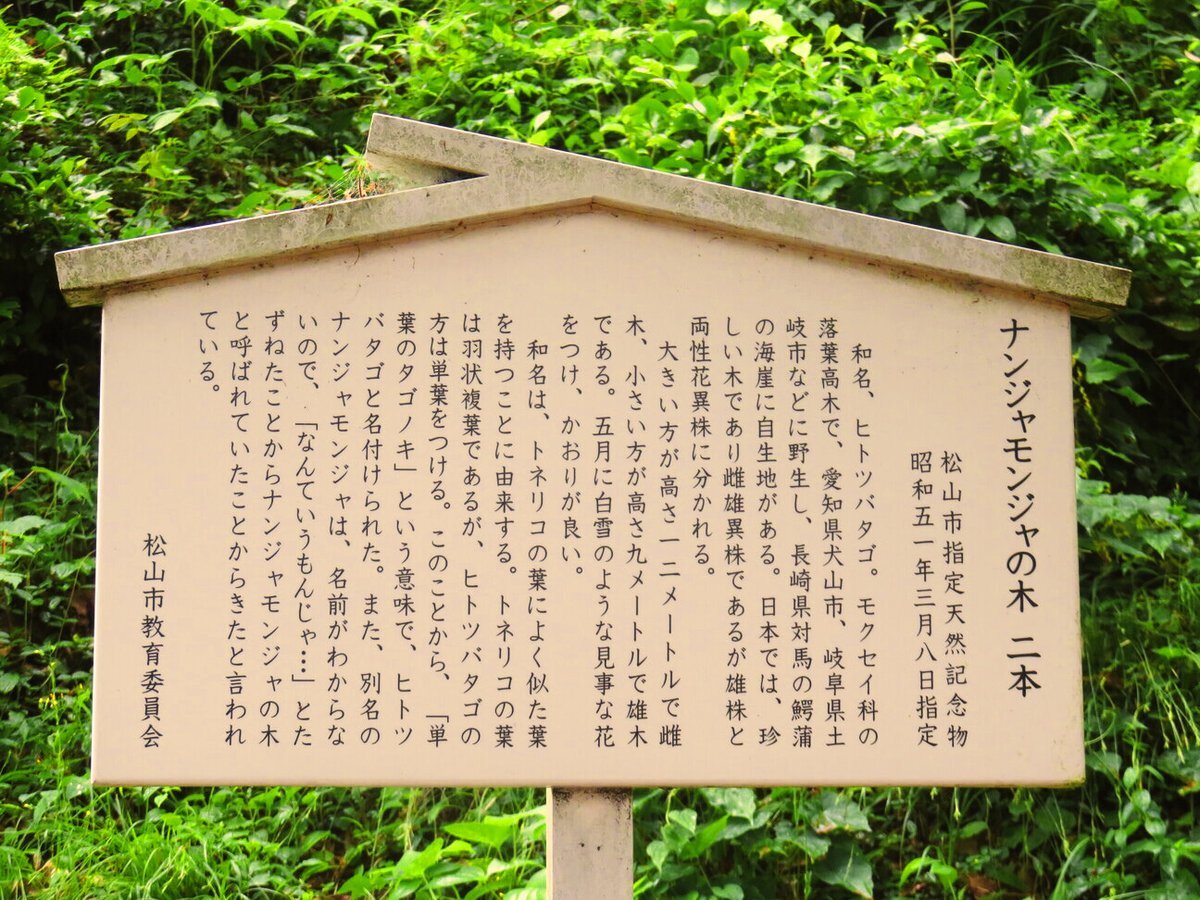 ナンジャモンジャの木 二本
松山市指定天然記念物
昭和五一年三月八日指定
和名、ヒトツバタゴ。モクセイ科の
落葉高木で、愛知県犬山市、岐阜県土
岐市などに野生し、長崎県対馬の鰐蒲
の海崖に自生地がある。日本では、珍
しい木であり雌雄異株であるが雄株と
両性花異株に分かれる。
大きい方が高さ一二メートルで雌
木、小さい方が高さ九メートルで雄木
である。五月に白雪のような見事な花
をつけ、かおりが良い。
和名は、トネリコの葉によく似た葉
を持つことに由来する。トネリコの葉
は羽状複葉であるが、ヒトツバタゴの
方は単葉をつける。このことから、「単
葉のタゴノキ」という意味で、ヒトツ
バタゴと名付けられた。また、別名の
ナンジャモンジャは、名前がわからな
いので、「なんていうもんじゃ…」とた
ずねたことからナンジャモンジャの木
と呼ばれていたことからきたと言われ
ている。
松山市教育委員会